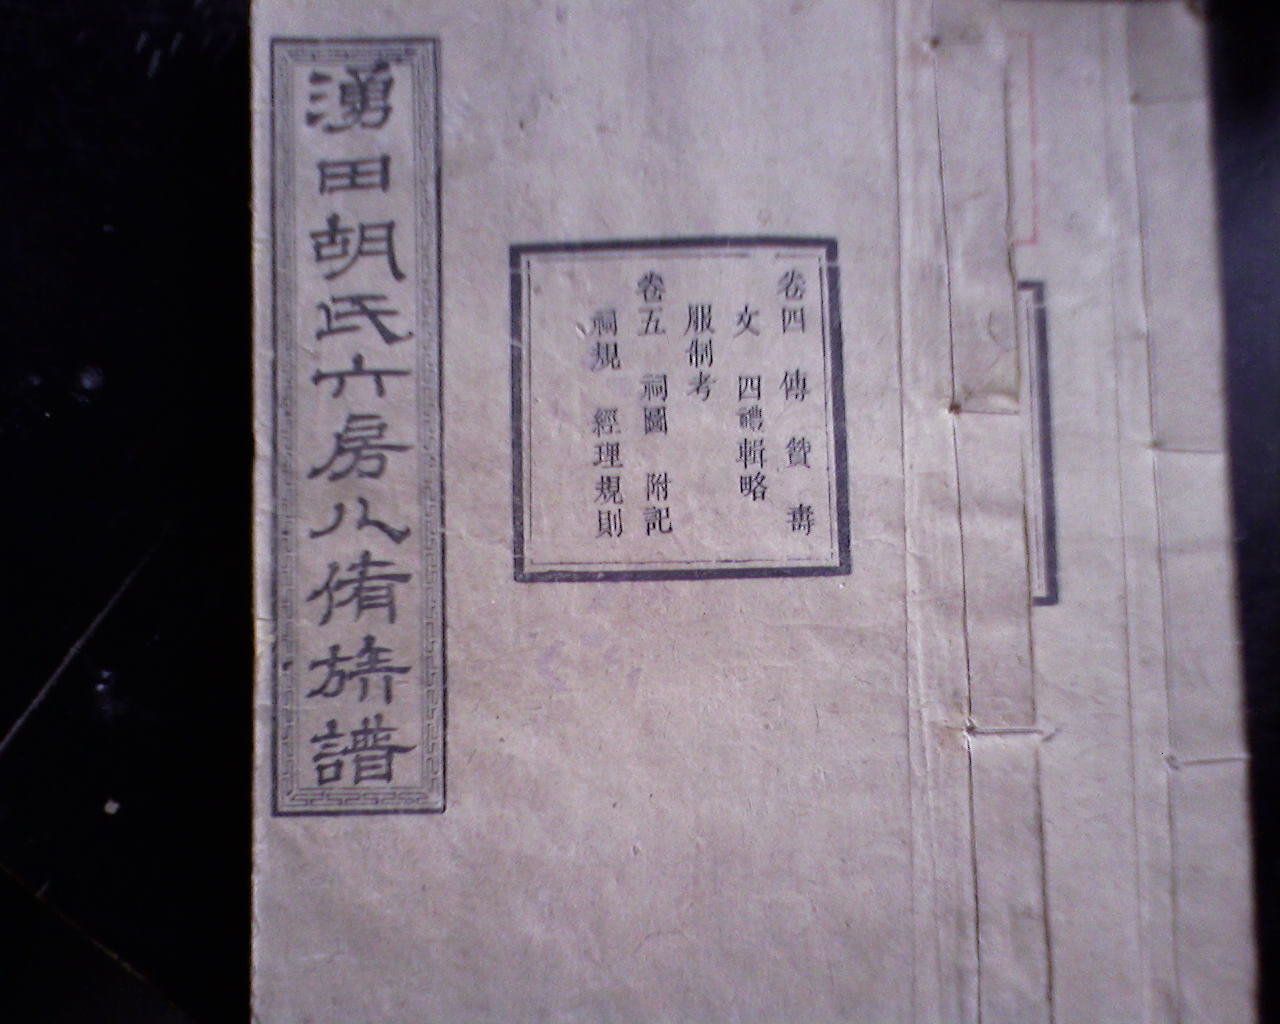 湧田胡氏六房八脩族譜
卷四 傳 贊 壽
文 四禮輯略
服制考
卷五 祠圖 附記
祠規 經理規則